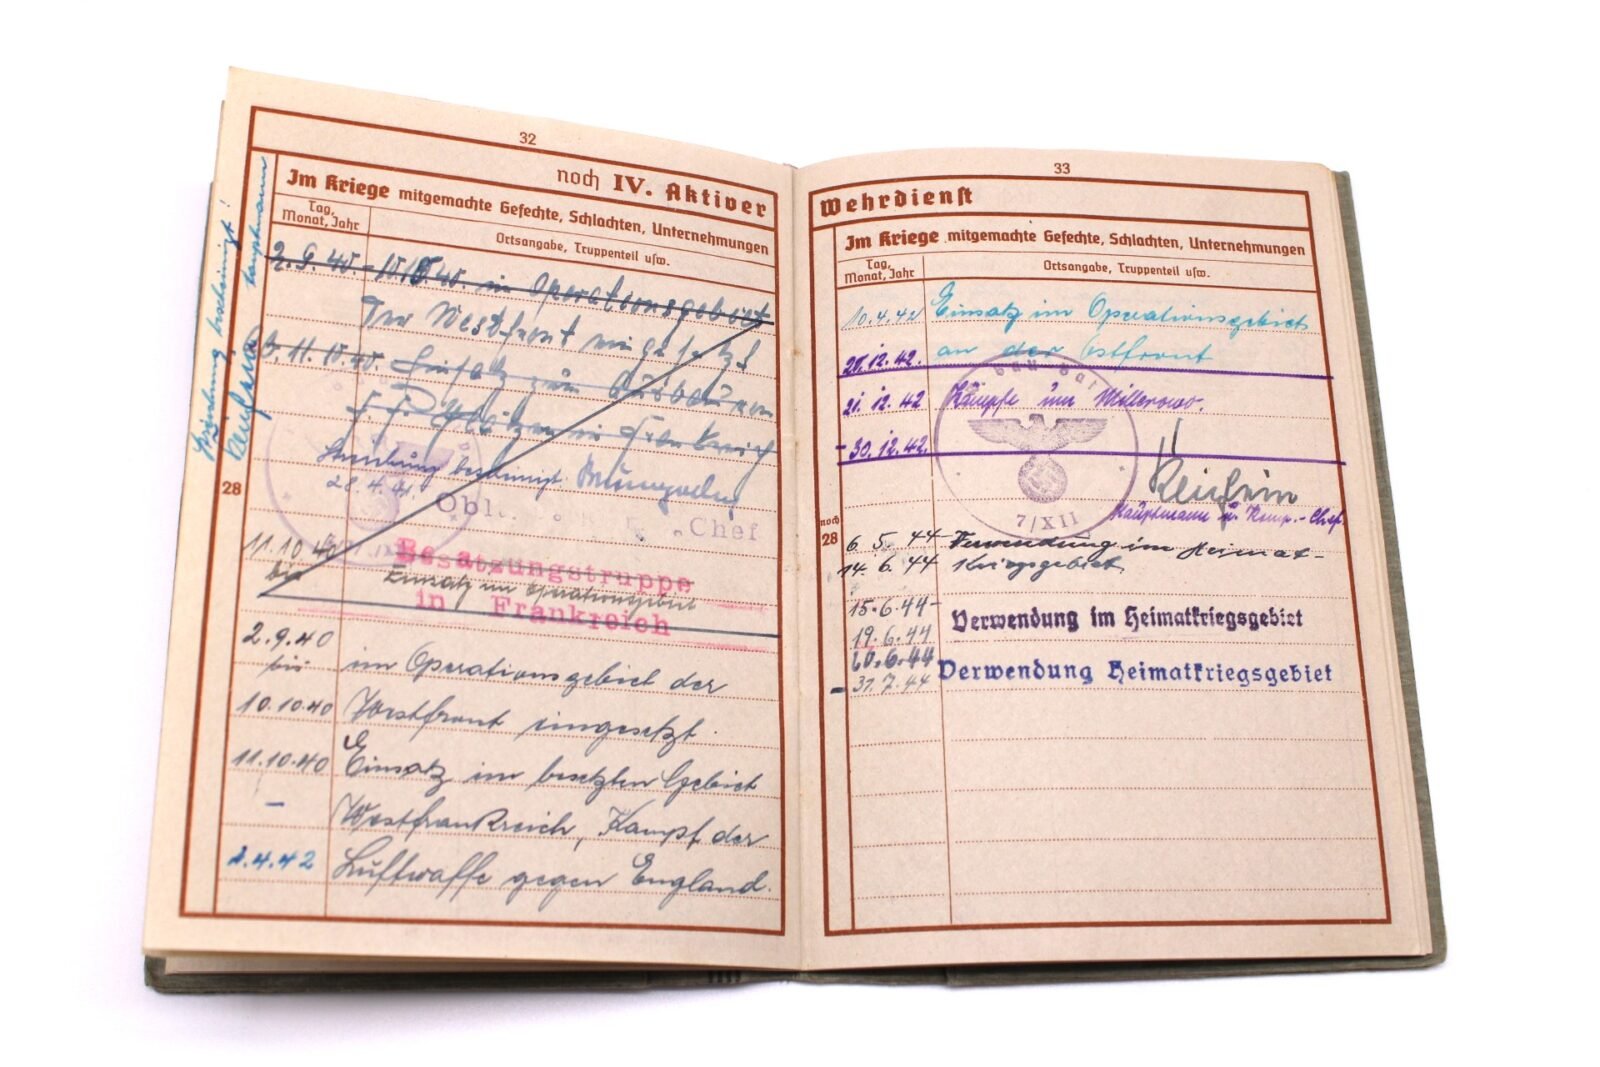 32
noch IV. Aktiver
Im Kriege mitgemachte Gefechte, Schlachten, Unternehmungen
Tag, Monat, Jahr
Ortsangabe, Truppenteil usw.
2.9.40. - 10.10.40. im Operationsgebiet
der Westfront eingesetzt
11.10.40. Einsatz zum Ausbau von
in Frankreich
Streichung bescheinigt
28.4.41.
Chef
11.10.40
bis
Besatzungstruppe
Einsatz im Operationsgebiet
in Frankreich
28
2.9.40
bis im Operationsgebiet der
10.10.40 Westfront eingesetzt.
11.10.40 Einsatz im besetzten Gebiet
- Westfrankreich, Kampf der
2.4.42 Luftwaffe gegen England.
Streichung bescheinigt!
Hauptmann
33
Wehrdienst
Im Kriege mitgemachte Gefechte, Schlachten, Unternehmungen
Tag, Monat, Jahr
Ortsangabe, Truppenteil usw.
10.4.42 Einsatz im Operationsgebiet
20.12.42. an der Ostfront
21.12.42 Kämpfe um Millerowo.
- 30.12.42.
7/XII
Hauptmann u. Komp.-Chef.
noch
28
6.5.44- Verwendung im Heimat-
14.6.44 kriegsgebiet
15.6.44-
19.6.44 Verwendung im Heimatkriegsgebiet
20.6.44 Verwendung Heimatkriegsgebiet
- 31.7.44